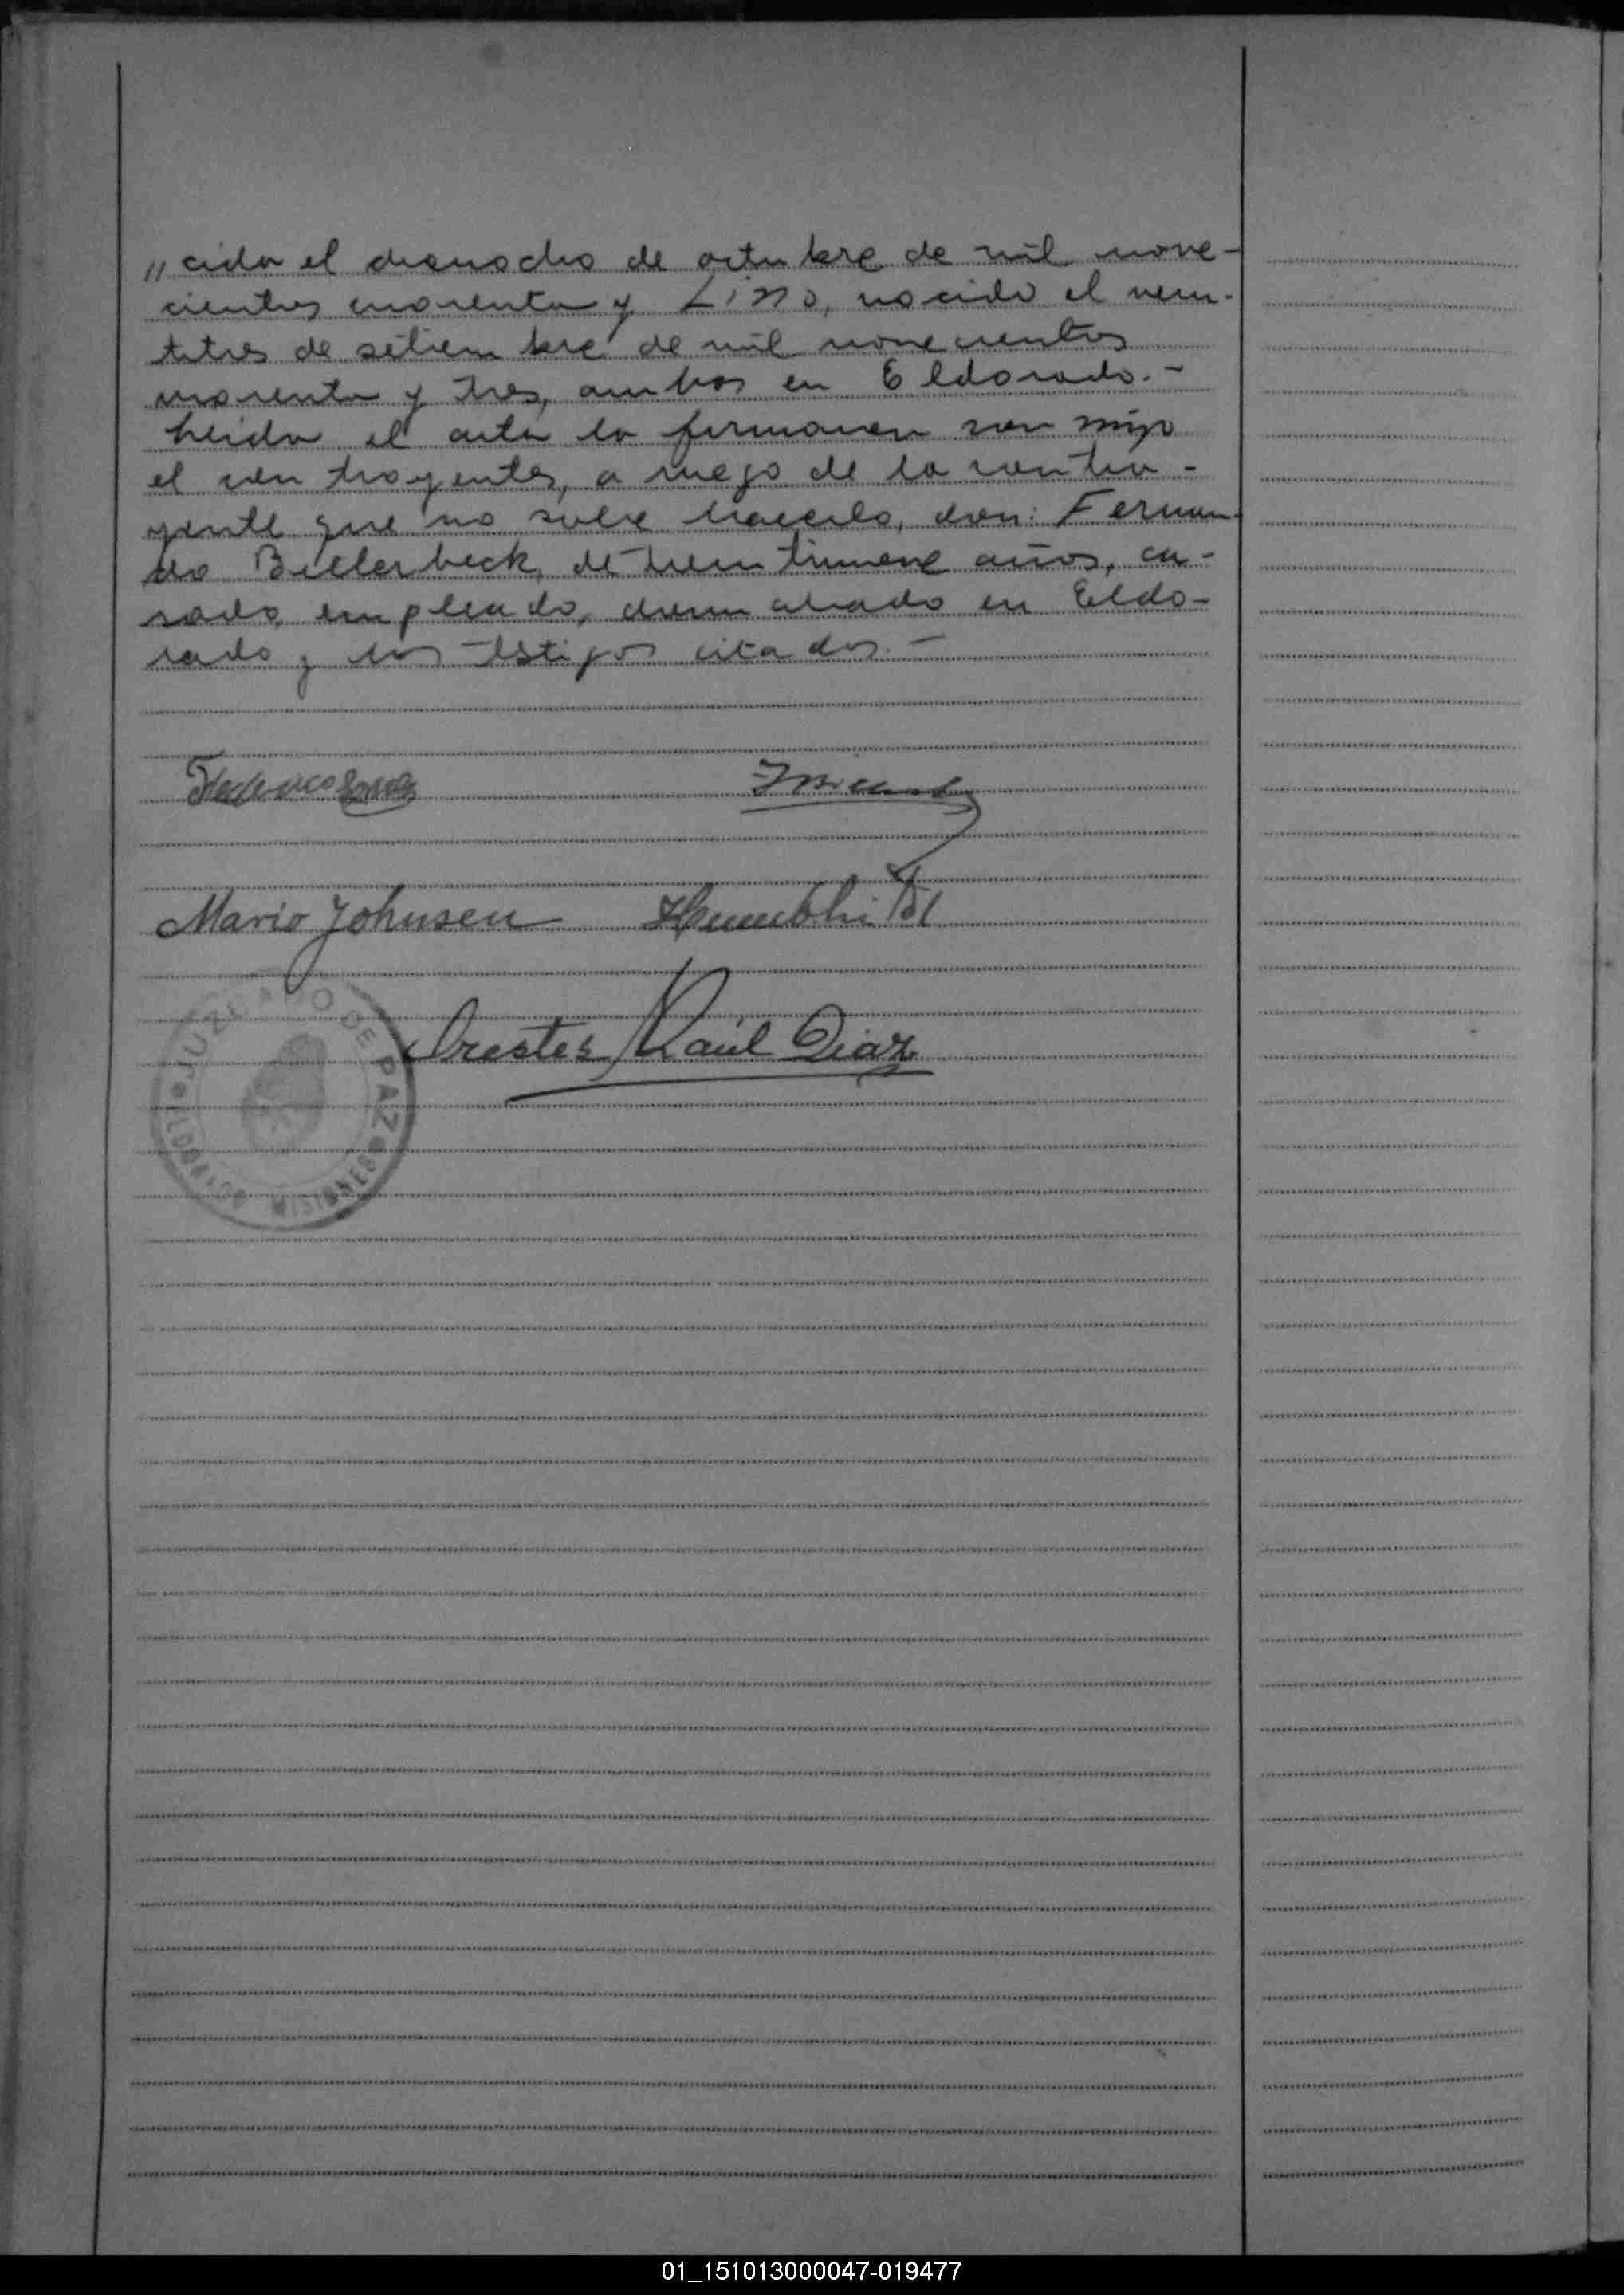 " cida el dieciocho de octubre de mil nove-
cientos cuarenta y Lino, nacido el vein-
titres de setiembre de mil novecientos
cuarenta y tres, ambos en Eldorado.-
Leida el acta la firmaron con migo
el contrayentes, a ruego de la contra-
yente que no sabe hacerlo, don: Fernan-
do Billerbeck, de treintinueve años, ca-
sado, empleado, domiciliado en Eldo-
rado y los testigos citados.-
Federico Sosa
Mario Johnsen
Orestes Raúl Diaz
JUZGADO DE PAZ
ELDORADO MISIONES
01_151013000047-019477